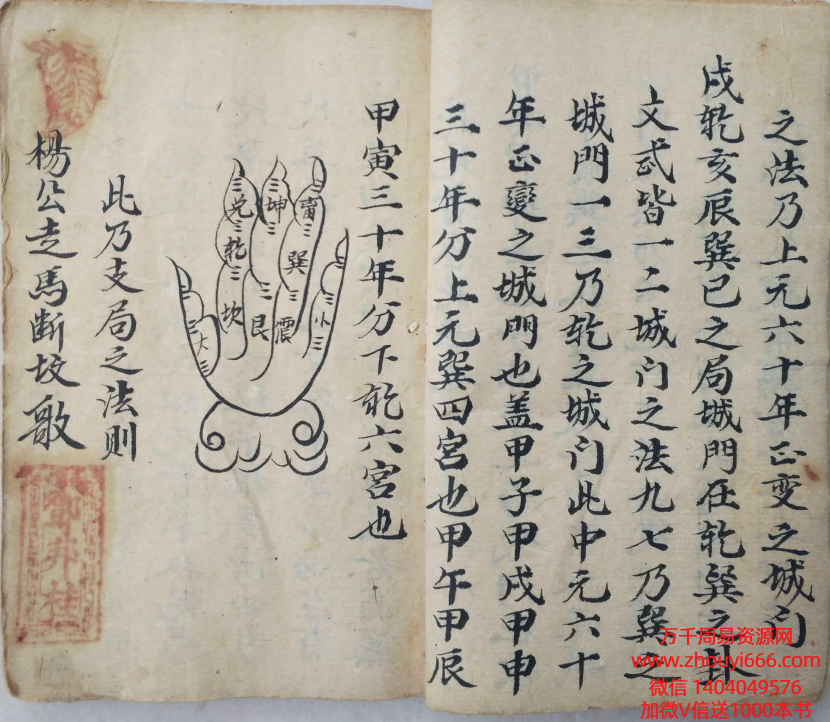 之法乃上元六十年正变之城门
戌乾亥辰巽巳之局城門在乾巽之卦
文武皆一二城门之法九七乃巽之
城門一三乃乾之城门此中元六十
年正變之城門也盖甲子甲戌甲申
三十年分上元巽四宮也甲午甲辰
甲寅三十年分下乾六宮也
兑 坤 離
乾 巽
坎 艮 震
大 小
此乃支局之法則
楊公走馬断坟
万千周易资源网
www.zhouyi666.com
微信 1404049576
加微V信送1000本书